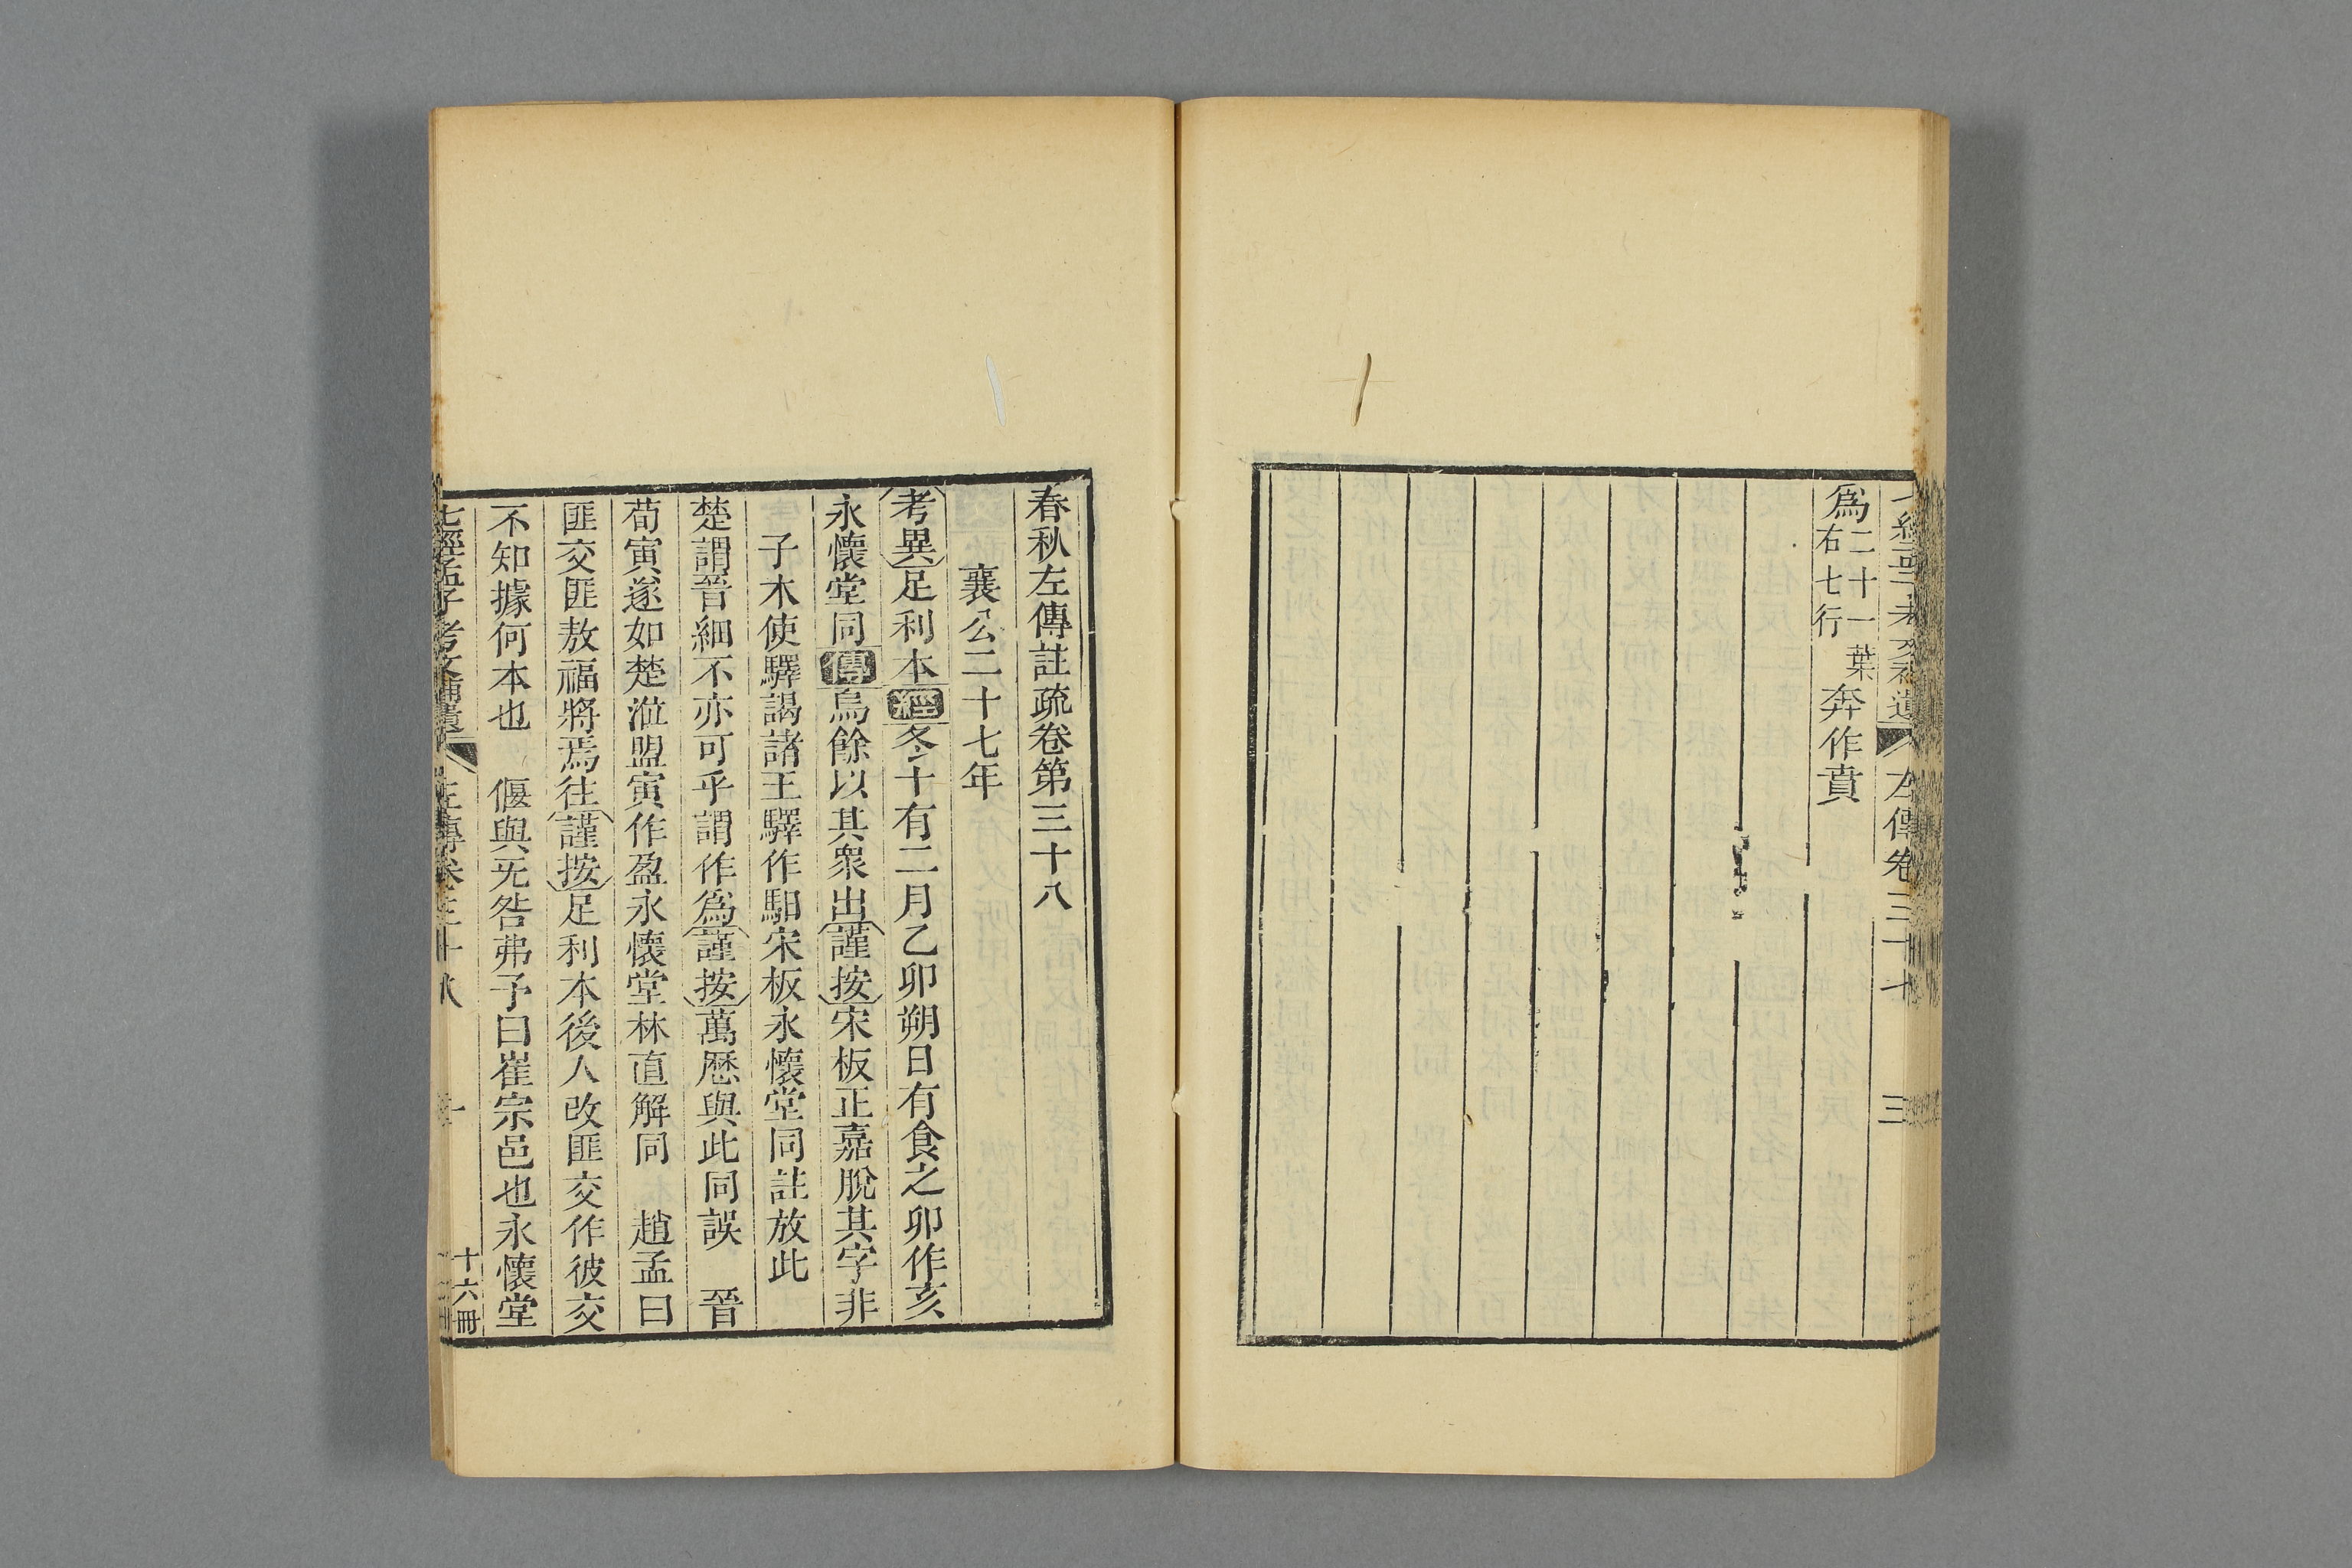 七經孟子考文補遺 左傳卷三十七 三
爲二十一葉右七行奔作賁
春秋左傳註疏卷第三十八
襄公二十七年
考異足利本經冬十有二月乙卯朔日有食之卯作亥
永懷堂同傳烏餘以其衆出謹按宋板正嘉脫其字非
子木使驛謁諸王驛作馹宋板永懷堂同註放此
楚謂晉細不亦可乎謂作爲謹按萬曆與此同誤 晉
荀寅遂如楚涖盟寅作盈永懷堂林直解同 趙孟曰
匪交匪敖福將焉往謹按足利本後人改匪交作彼交
不知據何本也 偃與旡咎弗予曰崔宗邑也永懷堂
七經孟子考文補遺 左傳卷三十八 一 十六冊